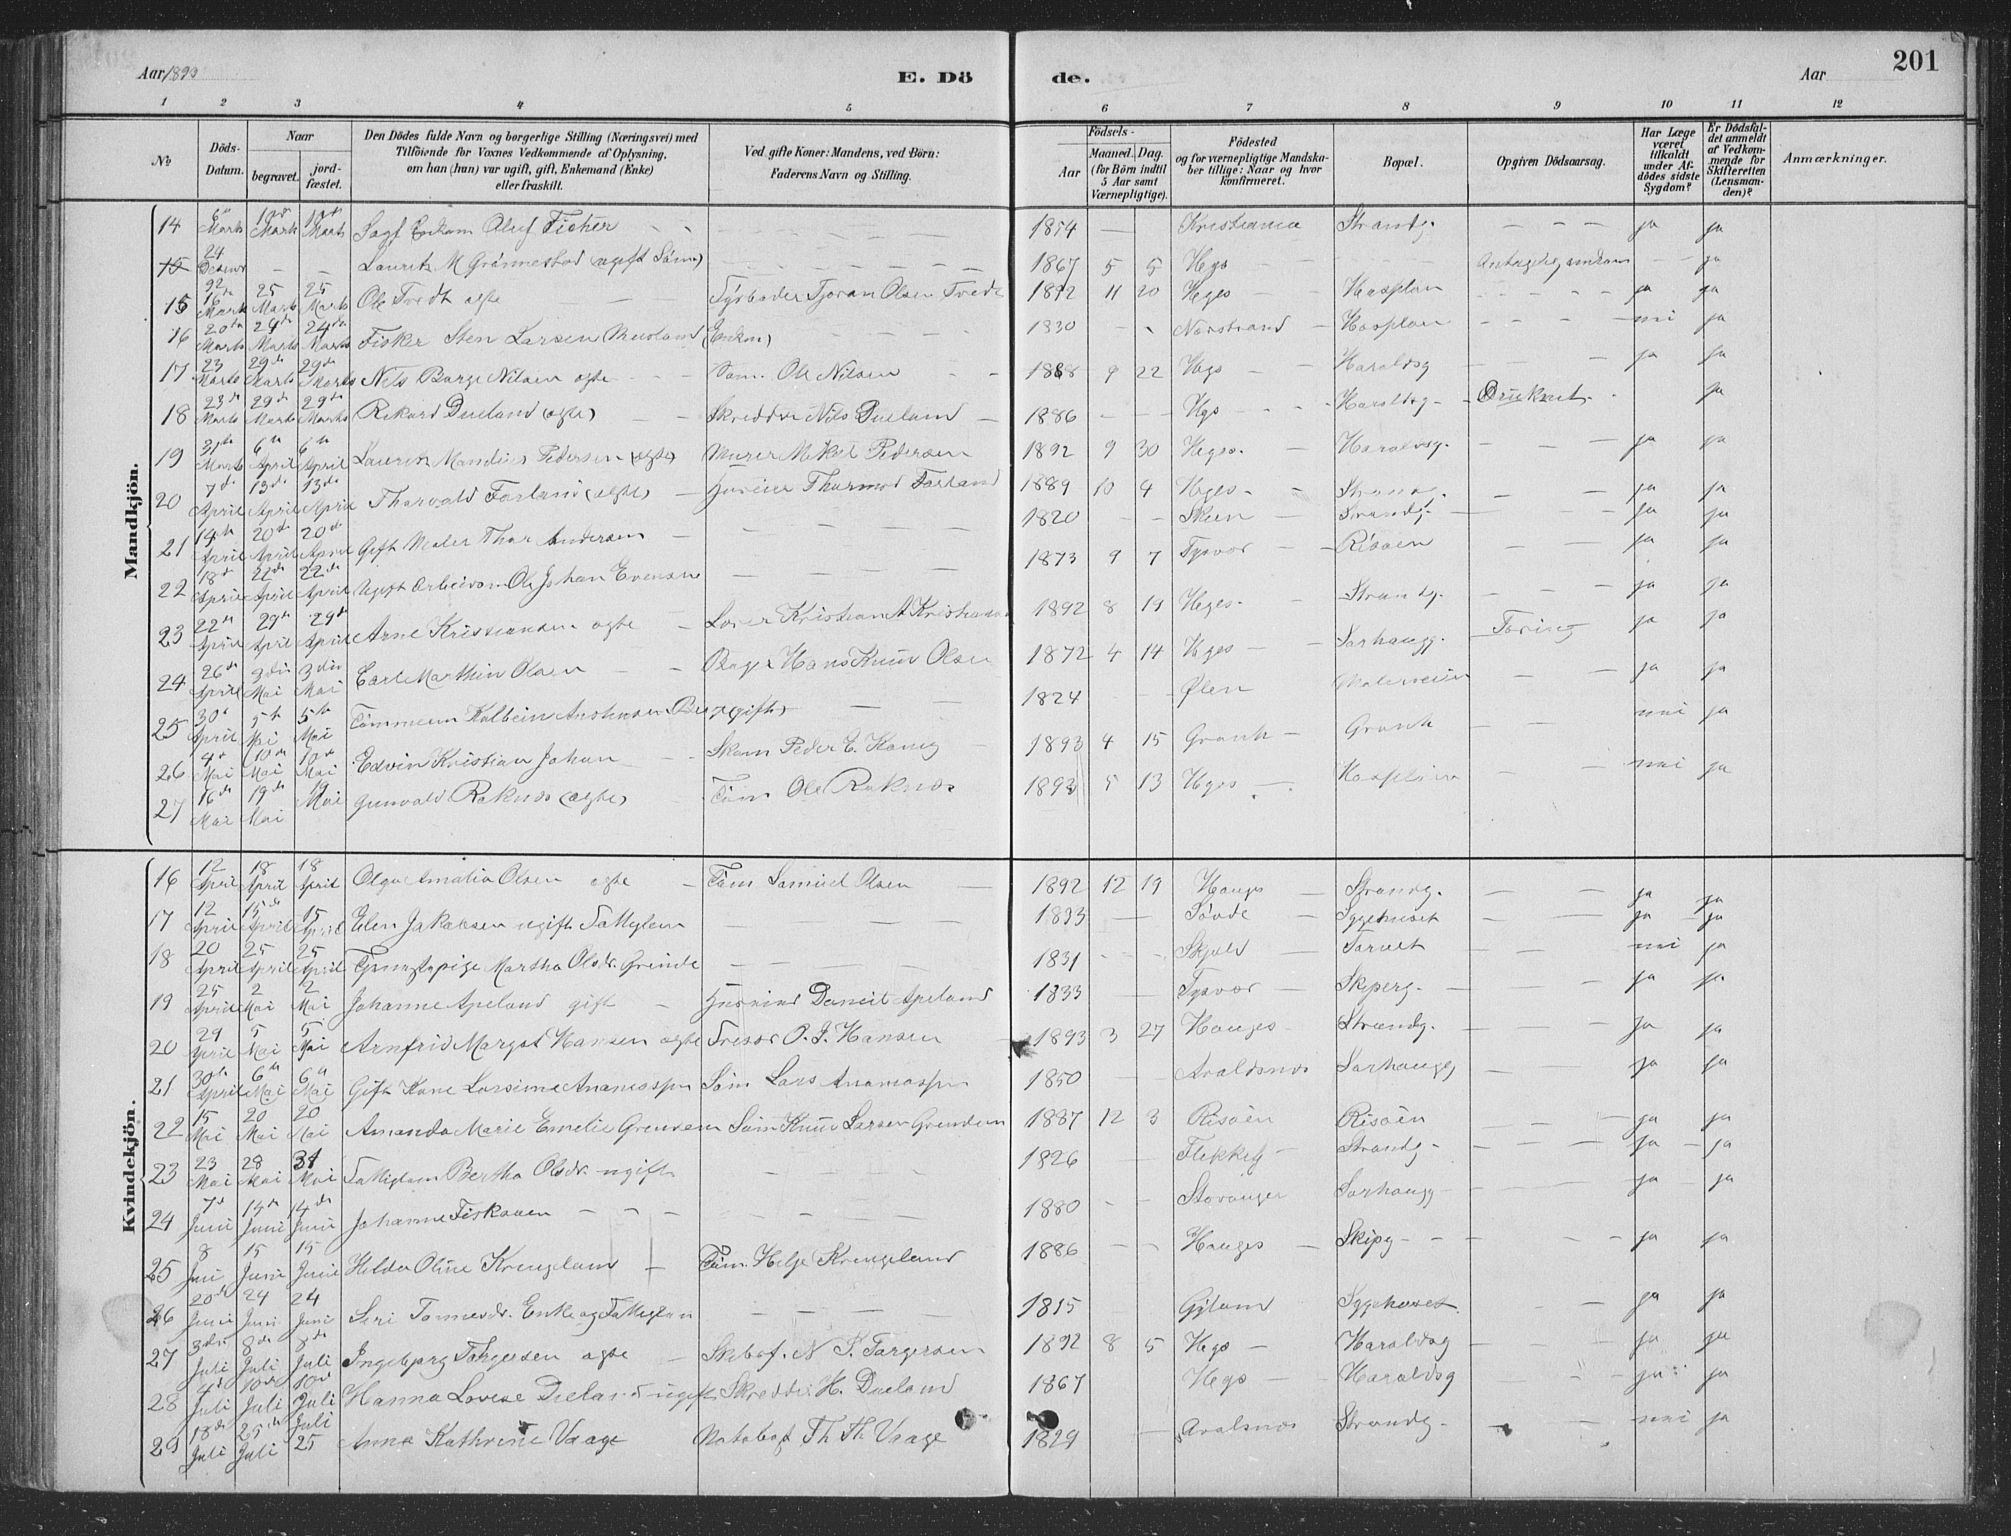 Aar 1893
E. Dö
de.
Aar
201
1 2 3 4 5 6 7 8 9 10 11 12
No
Döds-Datum.
Naar
begravet.
jord-fæstet.
Den Dödes fulde Navn og borgerlige Stilling (Næringsvei) med
Tilföiende for Voxnes Vedkommende af Oplysning,
om han (hun) var ugift, gift, Enkemand (Enke)
eller fraskilt.
Ved gifte Koner: Mandens, ved Börn:
Faderens Navn og Stilling.
Födsels-
Aar
Maaned. Dag.
(for Börn indtil
5 Aar samt
Værnepligtige).
Födested
og for værnepligtige Mandska-
ber tillige: Naar og hvor
konfirmeret.
Bopæl.
Opgiven Dödsaarsag.
Har Læge
været
tilkaldt
under Af-
dödes sidste
Sygdom?
Er Dödsfal-
det anmeldt
af Vedkom-
mende for
Skifteretten
(Lensman-
den)?
Anmærkninger.
Mandkjön.
14 6te Marts 10de Marts 10de Marts Enkem Oluf Fisher 1854 Kristiania Strandg. ja ja
15 24 Desemr 92 Laurits M Grönnestad (ugift Sömd) 1867 5 5 Hgs Antagelig omkom ja
15 16 Marts 25 Marts 25 Marts Ole Tvedt ægte Fyrböder Tjoran Olsen Tvedt 1892 11 20 Hges Hasplan ja ja
16 20de Marts 24de Marts 24de Marts Fisker Sten Larsen (Enkm) 1830 Norstrand Hasplan nei ja
17 23 Marts 29de Marts 29de Marts Nils Borge Nilsen ægte Söm. Ole Nilsen 1888 9 22 Hgs Haraldsg ja ja
18 23de Marts 29de Marts 29de Marts Rikard Dueland (ægte) Skredder Nils Dueland 1886 Hgs Haraldsg Druknet ja
19 31te Marts 6te April 6te April Laurits Mandius Pedersen (ægte) Murer Mikal Pedersen 1892 9 30 Hges. Haraldsg. ja ja
20 7de April 13de April 13de April Thorvald Forland (ægte) Huseier Thormod Forland 1889 10 4 Hges Strandg. ja ja
21 14de April 20de April 20de April Gift Maler Thor Andersen 1820 Skien Strandg ja ja
22 18de April 22de April 22de April Ugift Arbeidsm Ole Johan Evensen 1873 9 7 Tysvær Risöen ja ja
23 22de April 29de April 29de April Arne Kristiansen ægte Kristian A Kristiansen 1892 8 19 Hges. Strandg. ja ja
24 26de April 3die Mai 3die Mai Carl Marthin Olsen Bager Hans Knud Olsen 1872 4 14 Hges Sorhaugg. Tæring ja ja
25 30te April 5te Mai 5te Mai Tömmerm Kolbein (gift) 1824 Ølen ja ja
26 4de Mai 10de Mai 10de Mai Edvin Kristian Johan Peder C. Konig 1893 4 15 Gronh Gronh nei ja
27 16de Mai 19de Mai 19 Mai Gunvald Raknes (ægte) Töm Ole Raknes 1893 5 13 Hges Hasplan nei ja
Kvindekjön.
16 12 April 18 April 18 April Olga Amalia Olsen ægte Töm Samuel Olsen 1892 12 19 Hauges Strandg. ja ja
17 12 April 15de April 15 April Elen Jakobsen ugift Fattiglem 1833 Sövde Sygehuset ja ja
18 20 April 25 April 25 April Tjenestepige Martha Olsdr Grinde 1831 Skjold Torvet nei ja
19 25 April 2 Mai 2 Mai Johanne Apeland gift Husmand Daniel Apeland 1833 Tysvær Skiperg ja ja
20 29 April 5 Mai 5 Mai Arnfrid Margot Hansen ægte O. J. Hansen 1893 3 27 Hauges Strandg. ja ja
21 30te April 6te Mai 6te Mai Gift Kone Larsine Ananiaspn Söm Lars Ananiaspn 1850 Avaldsnes Sorhaugg ja ja
22 15 Mai 20 Mai 20 Mai Amanda Marie Emelie Grensen Söm Knud Larsen 1887 12 3 Risöen Risöen ja ja
23 23 Mai 28 Mai 31 Mai Fattiglem Bertha Olsdr. ugift 1826 Flekkefj Strandg ja ja
24 7de Juni 14de Juni 14de Juni Johanne Fiskaaen 1880 Stavanger Sorhaugg ja ja
25 8 Juni 15 Juni 15 Juni Hilda Oline Krengland Töm. Helge Krengeland 1886 Hauges Skipg ja ja
26 20de Juni 24 Juni 24 Juni Siri Tonnesdr. Enke og Fattiglem 1815 Sygehuset ja ja
27 3die Juli 8de Juli 8de Juli Ingebjorg Torgersen ægte Skibsf. N. S. Torgersen 1892 8 5 Hgs Haraldsg ja ja
28 4de Juli 10de Juli 10de Juli Hanna Lovise Dueland ugift Skredder H. Dueland 1867 Hegs Haraldsg ja ja
29 18de Juli 25de Juli Juli 25 Anna Kathrine Vaage Th Th Vaage 1829 Avalsnes Strandg nei ja